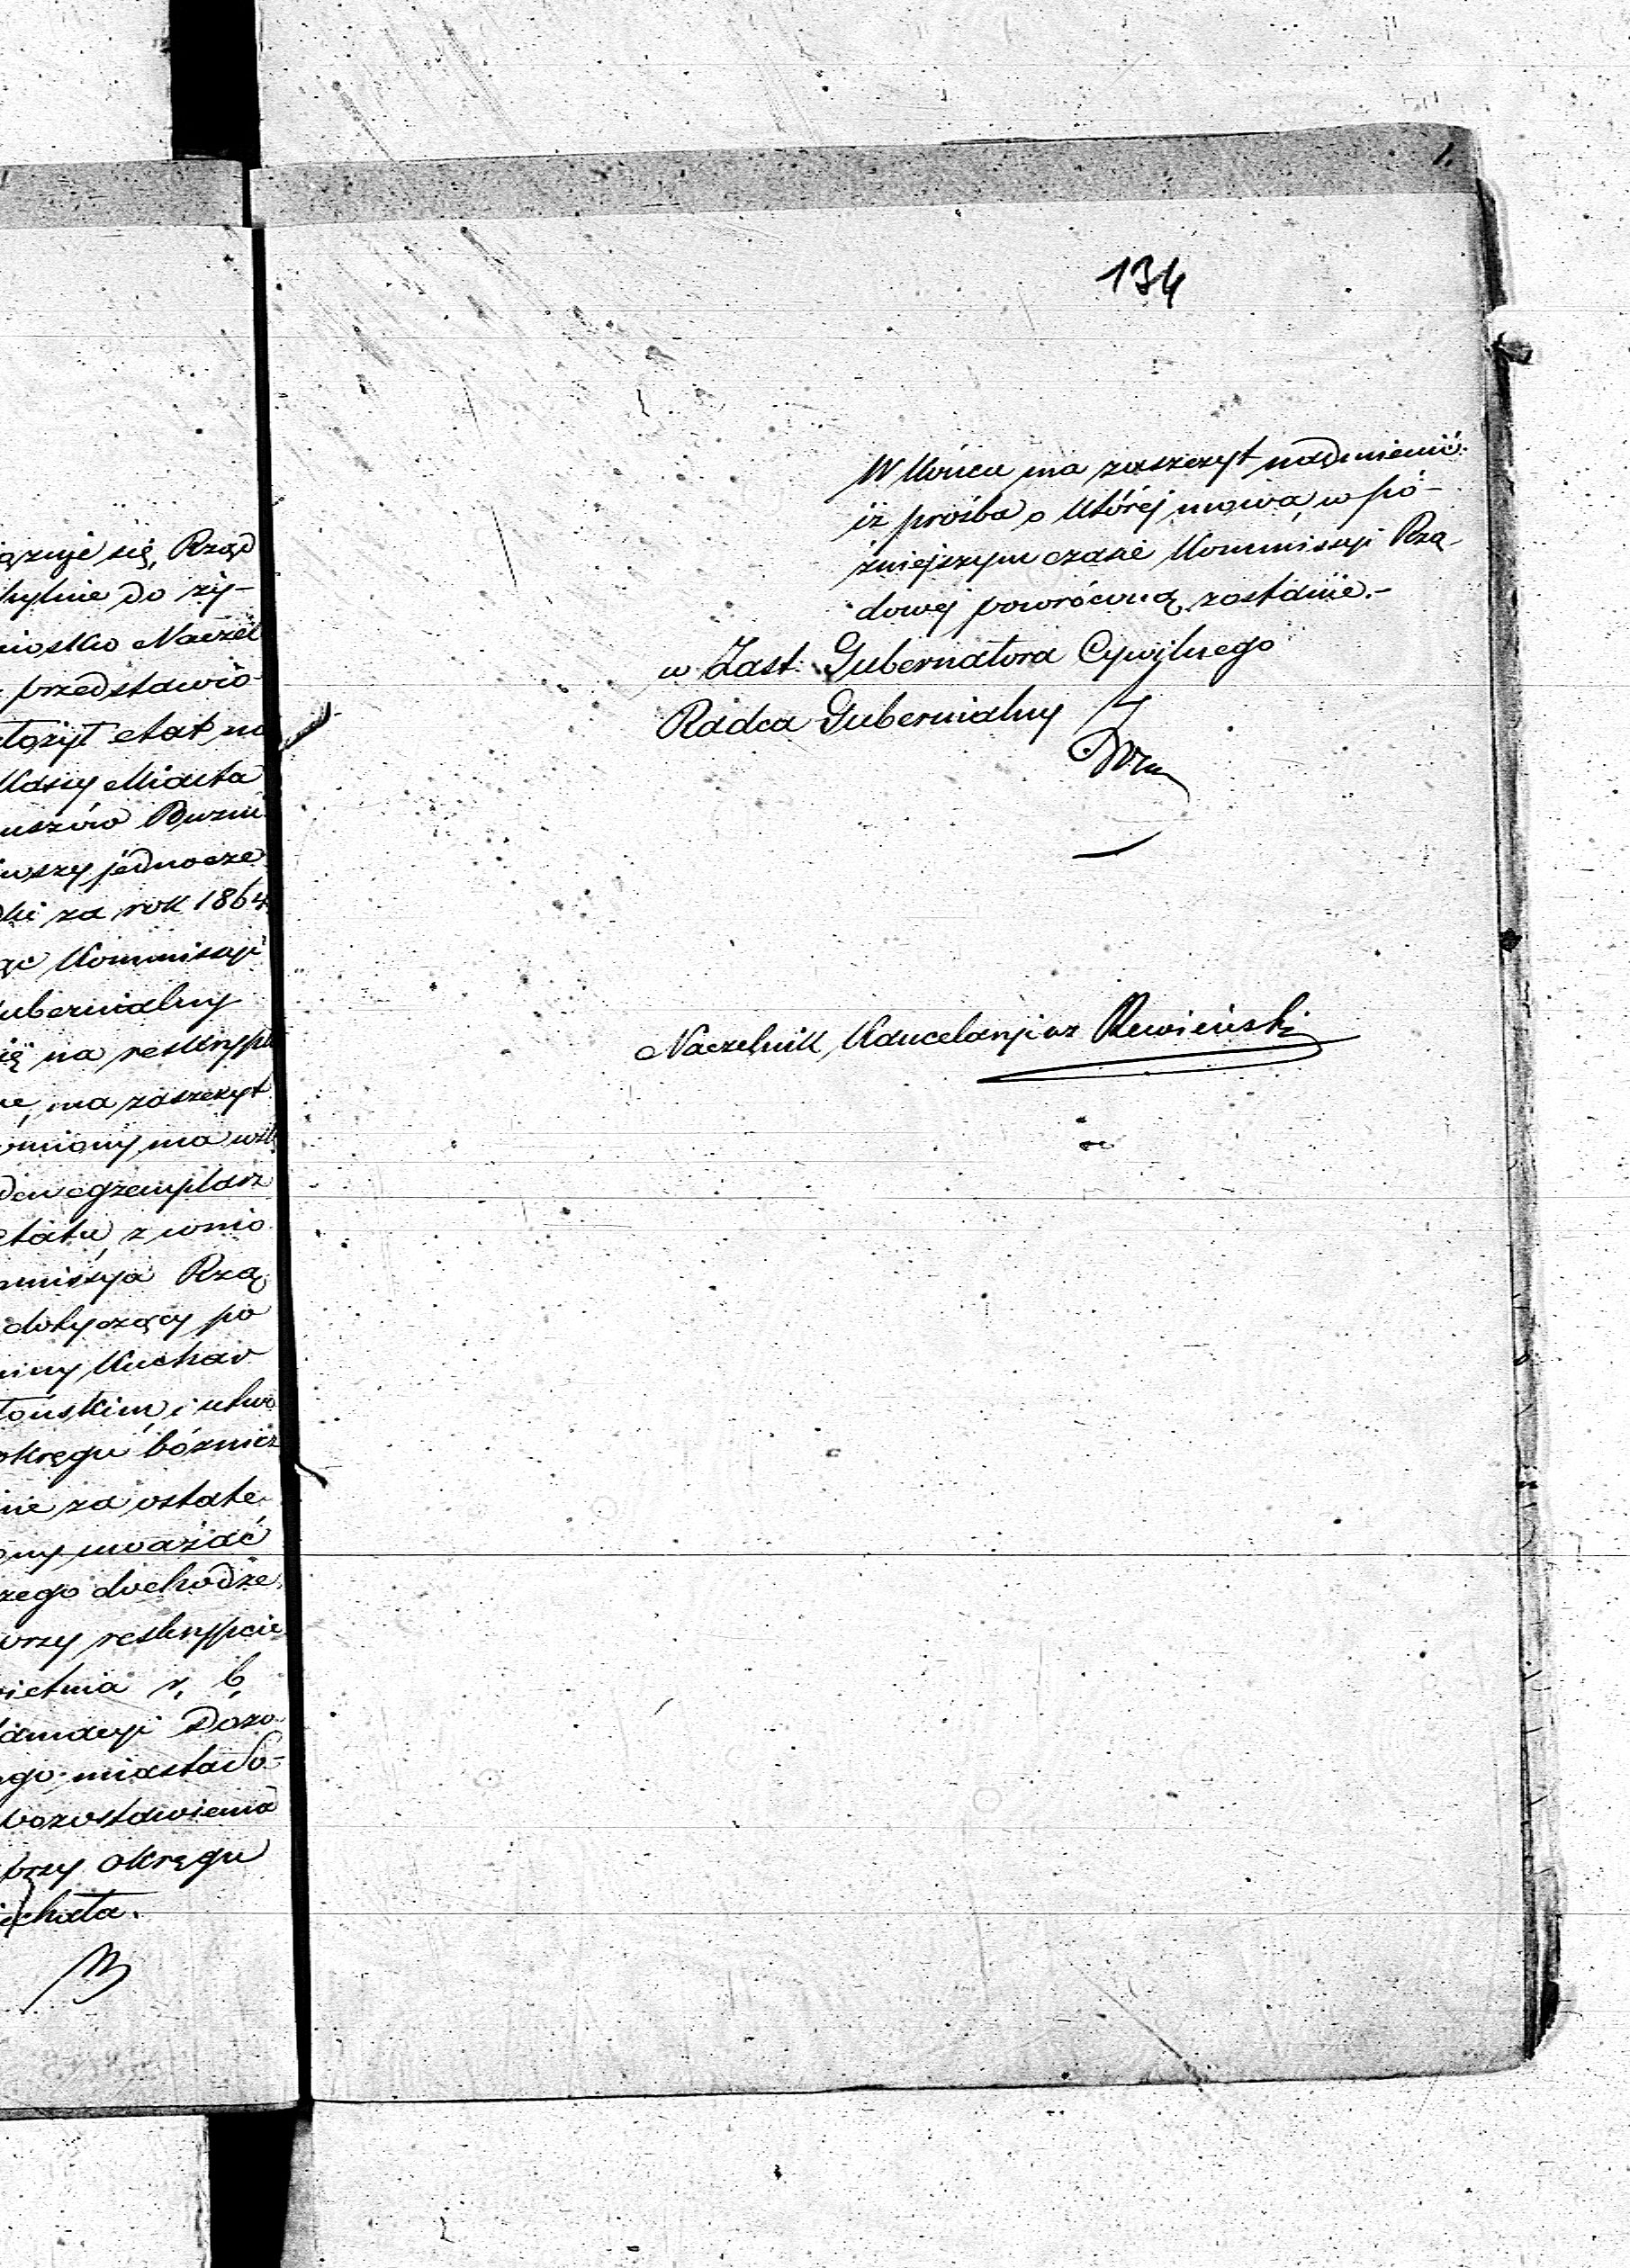 ązuje się, Rząd
hylnie do ży-
niosku Naczel
przedstawio
etat na
Kassy Miasta
uszów Buźni
wszy jednocze
ki za rok 1864
Kommissyi
ubernialny
ię na reskrypt
ma zaszczyt
omiony ma
den egzemplarz
etatu z wnio
mmissya Rzą
dotyczący po
miny Kuchar
tońskim i utwo
okręgu bóżnicz
nie za ostate
ony uważać
zego dochodze
przy reskrypcie
wietnia r. b.
Dozo
go miasta do-
pozostawienia
przy okręgu
ichała.
134
1.
W końcu ma zaszczyt nadmienić
iż prośba o której mowa w pó-
źniejszym czasie Kommissyi Rzą-
dowej powróconą zostanie.-
w Zast. Gubernatora Cywilnego
Radca Gubernialny
Naczelnik Kancelaryi wz Rewieński